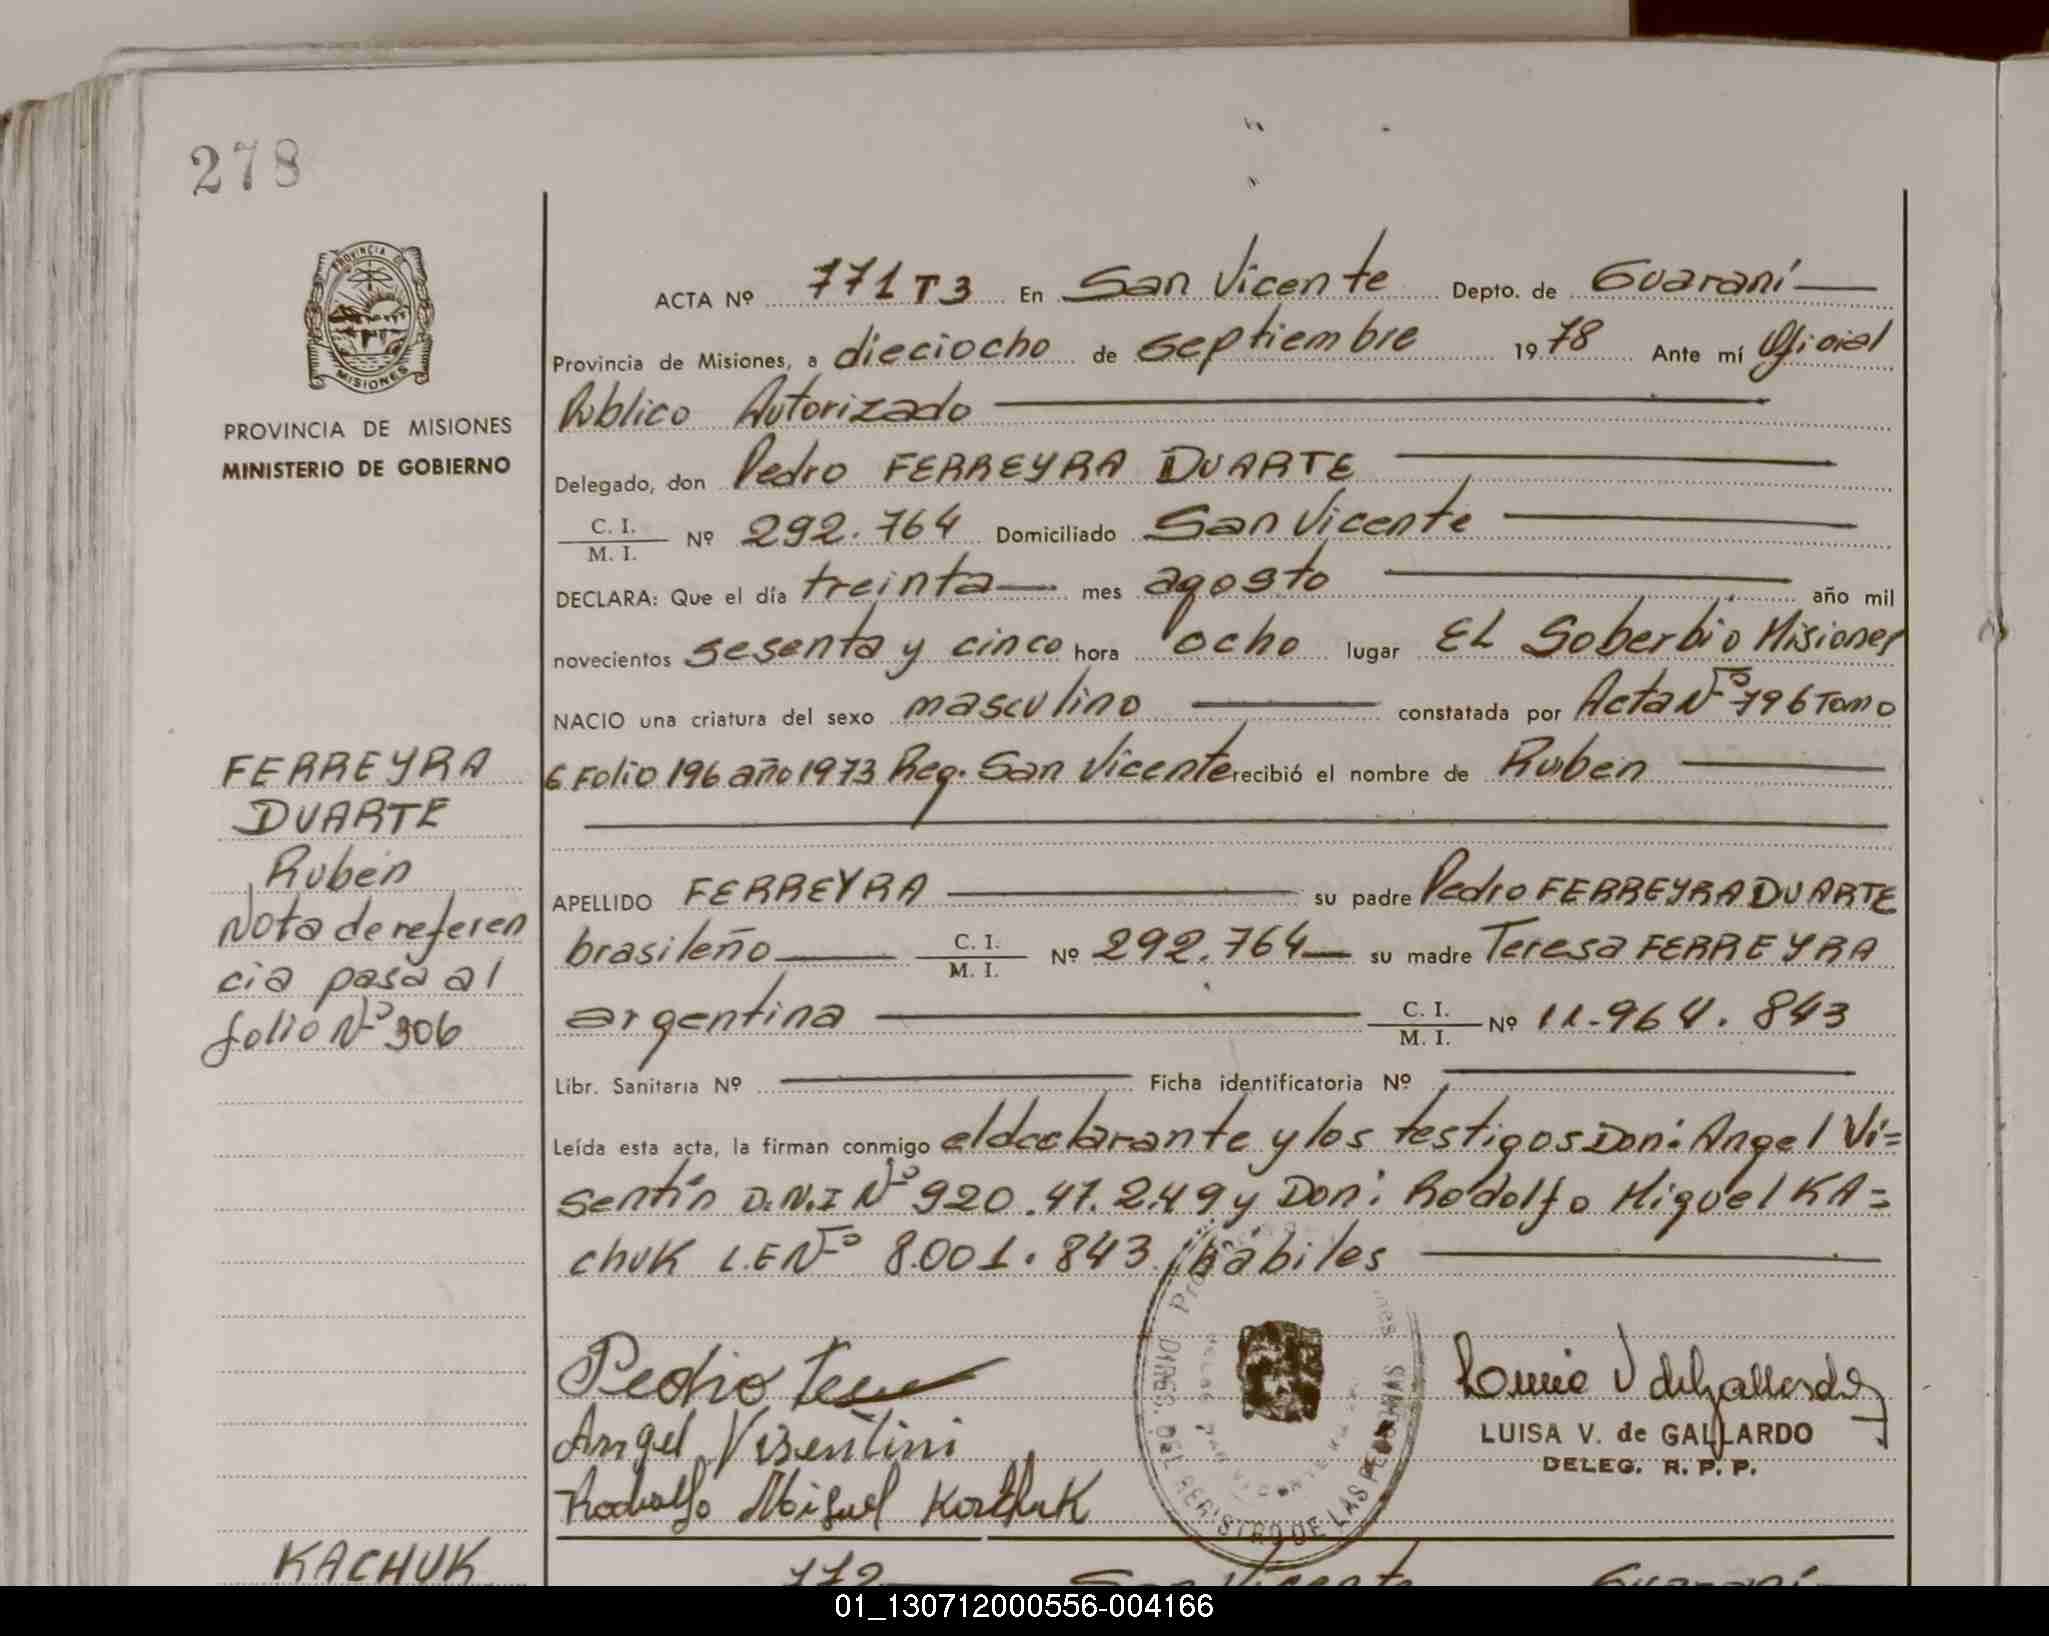 278
PROVINCIA DE
MISIONES
PROVINCIA DE MISIONES
MINISTERIO DE GOBIERNO
ACTA Nº 771 T3 En San Vicente Depto. de Guaraní
Provincia de Misiones, a dieciocho de septiembre 1978 Ante mí Oficial
Publico Autorizado
Delegado, don Pedro FERREYRA DUARTE
C. I. / M. I. Nº 292.764 Domiciliado San Vicente
DECLARA: Que el día treinta mes agosto año mil
novecientos sesenta y cinco hora ocho lugar EL Soberbio Misiones
NACIO una criatura del sexo masculino constatada por Acta Nº 796 Tomo
6 Folio 196 año 1973 Reg. San Vicente recibió el nombre de Ruben
APELLIDO FERREYRA su padre Pedro FERREYRA DUARTE
brasileño C. I. / M. I. Nº 292.764 su madre Teresa FERREYRA
argentina C. I. / M. I. Nº 11.964.843
Libr. Sanitaria Nº Ficha identificatoria Nº
Leída esta acta, la firman conmigo el declarante y los testigos Don: Angel Vi=
sentín D.N.I Nº 920.47.249 y Don: Rodolfo Miguel KA=
chuk L.E Nº 8.001.843 hábiles
FERREYRA
DUARTE
Rubén
Nota de referen
cia pasa al
folio Nº 306
Pedro
Angel Visentini
Rodolfo Miguel
DIREC. DEL REGISTRO DE LAS PERSONAS
LUISA V. de GALLARDO
DELEG. R. P. P.
KACHUK
772 San Vicente Guaraní
01_130712000556-004166